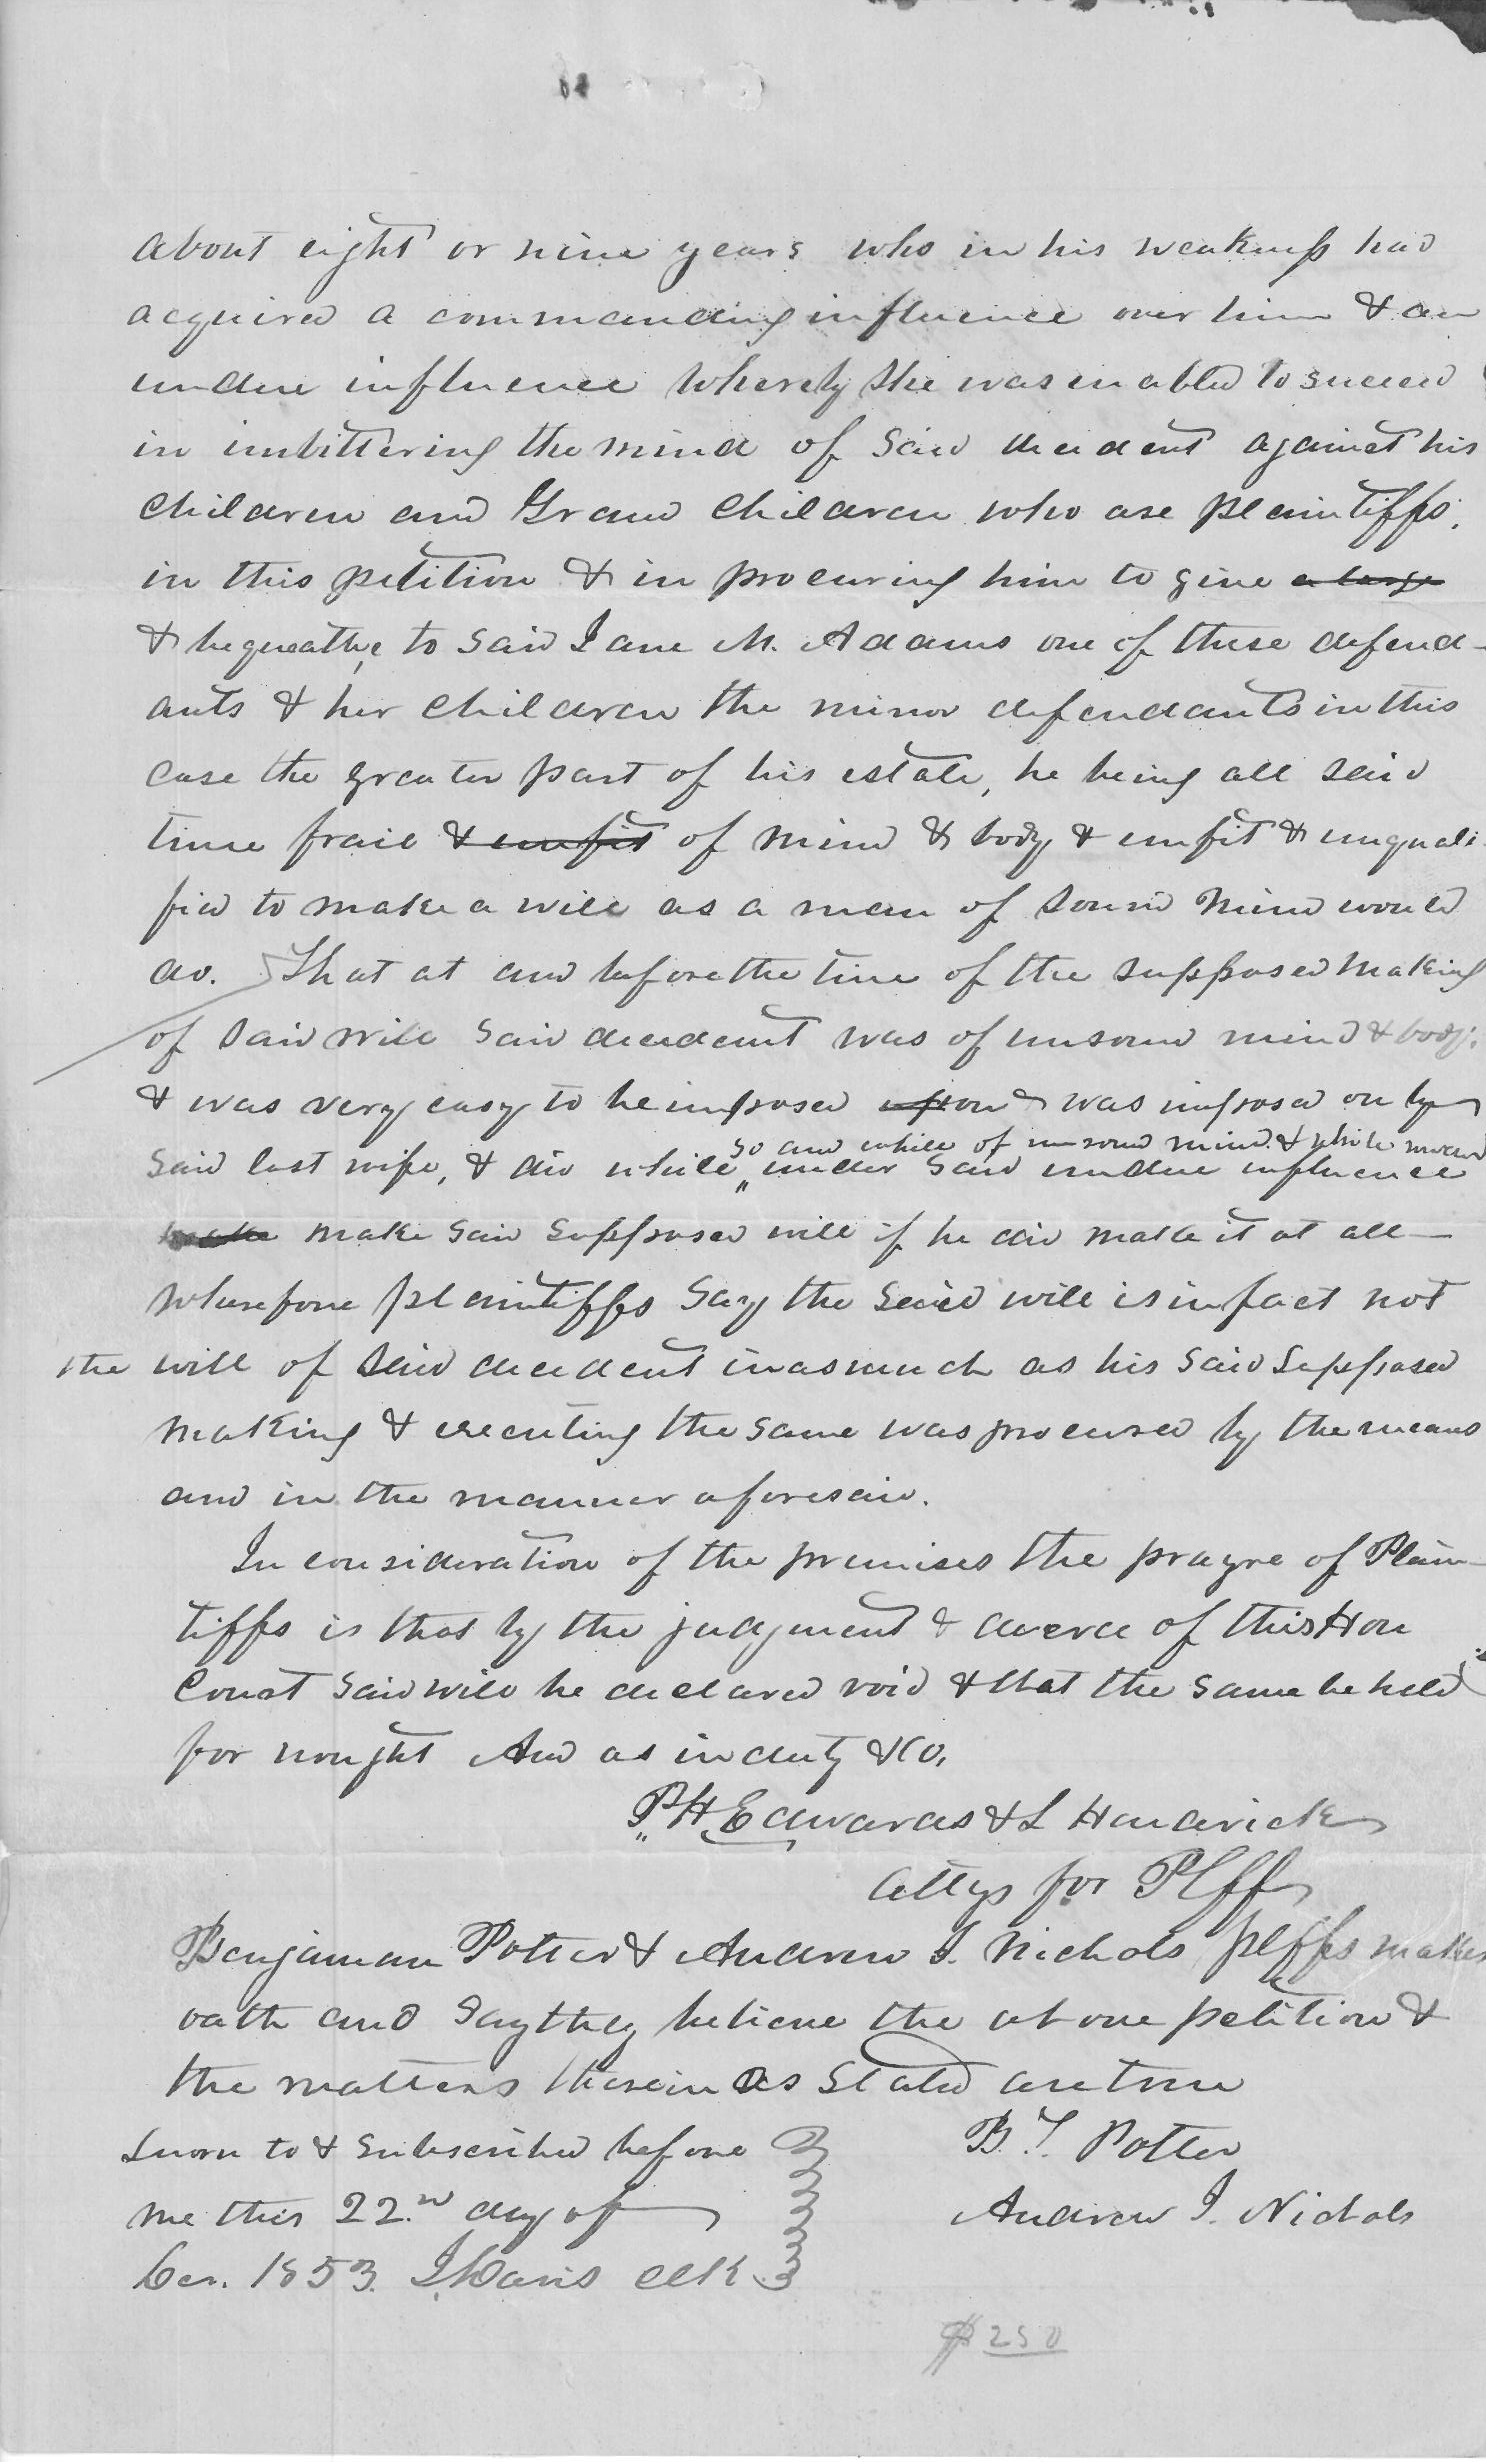 about eight or nine years who in his weakness had
acquired a commanding influence over him & an
undue influence whereby she was enabled to succeed
in imbittering the mind of said decedent against his
children and Grand children who are plaintiffs,
in this petition & in procuring him to give a large
& bequeathe to said Jane M. Adams one of these defend-
ants & her children the minor defendants in this
case the greater part of his estate, he being all said
time frail & unfit of mind & body & unfit & unquali-
fied to make a will as a man of sound mind would
do. That at and before the time of the supposed making
of said will said decedent was of unsound mind & body;
& was very easy to be imposed upon & was imposed on by
so and while of unsound mind & while
said last wife, & did while under said undue influence
make make said supposed will if he did make it at all—
wherefore plaintiffs say the said will is in fact not
the will of said decedent inasmuch as his said supposed
making & executing the same was procured by the means
and in the manner aforesaid.
In consideration of the premises the prayre of Plain-
tiffs is that by the judgment & decree of this Hon
Court said will be declared void & that the same be held
for nought And as in duty &Co.
P H Edwards & L Hendrick
Attys for Plff
Benjaman Potter & Andrew J. Nichols plffs makes
oath and say they believe the above petition &
the matters therein as stated are true
Sworn to & subscribed before
B. T. Potter
me this 22.nd day of
Andrew J. Nichols
Dec. 1853. J Davis Clk
$250